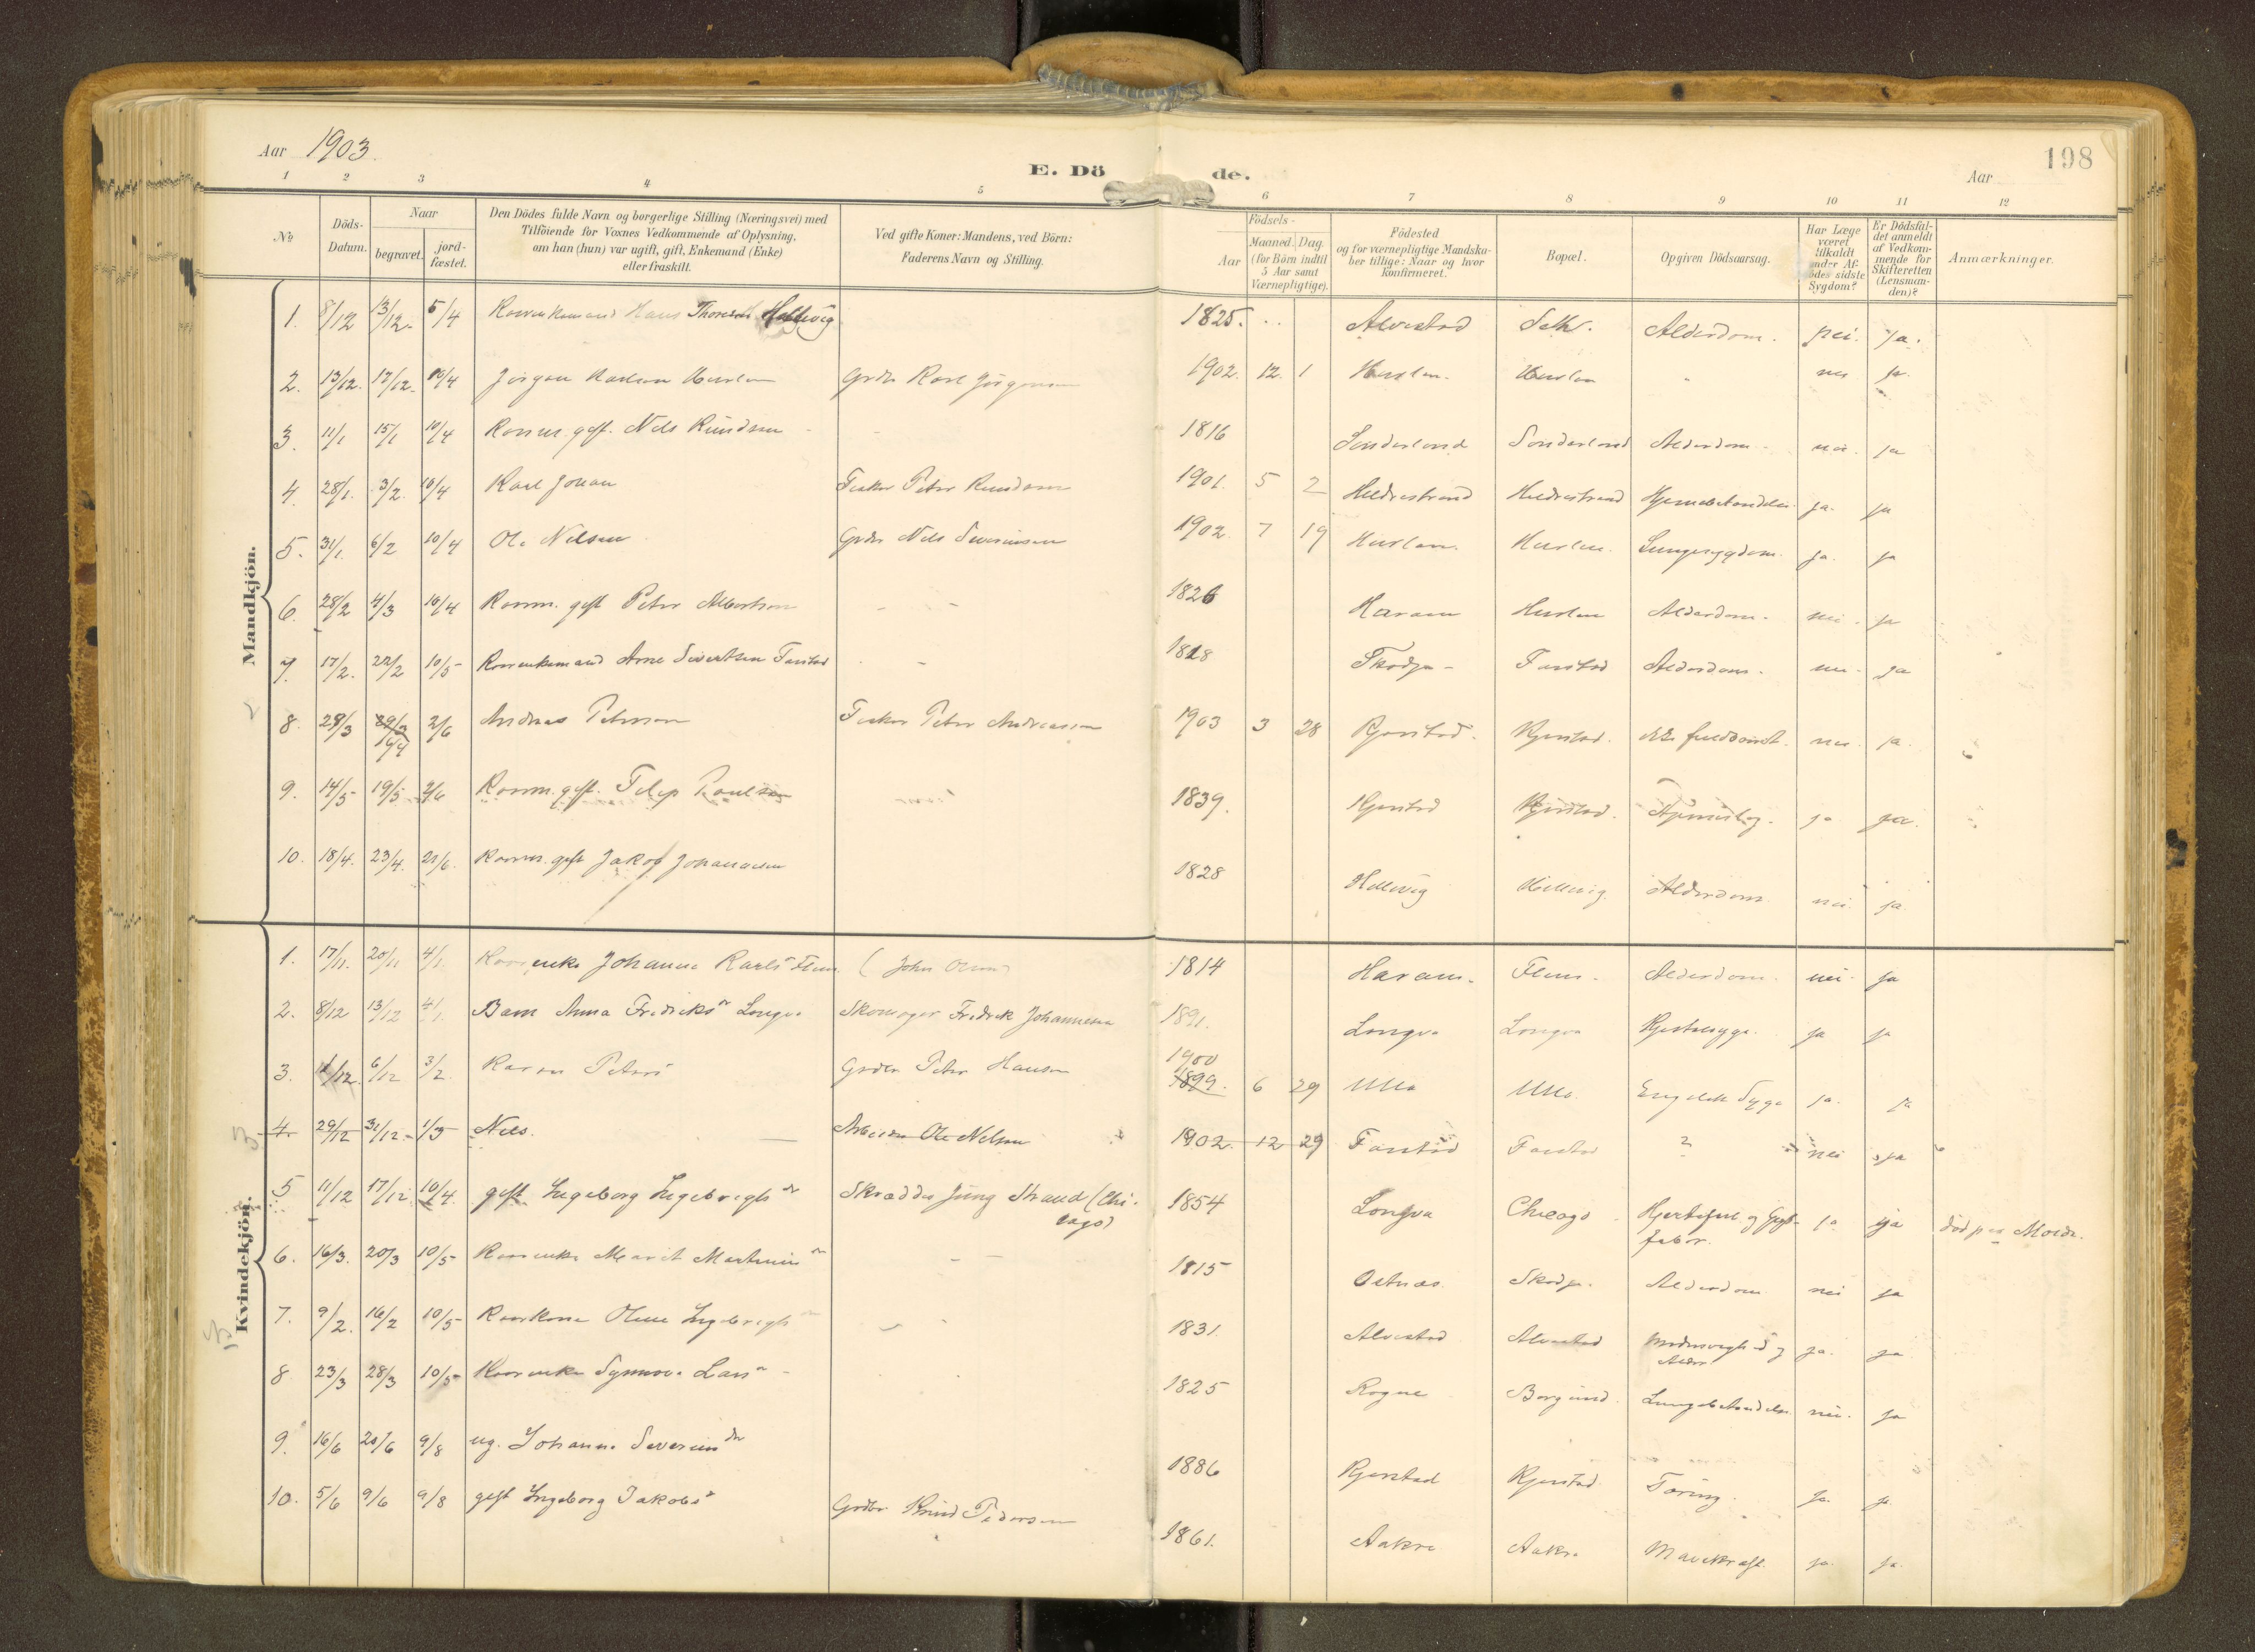 Aar 1903.
E. Dö de.
Aar
198
1 2 3 4 5 6 7 8 9 10 11 12
No.
Döds-Datum.
Naar
begravet.
jord-fæstet.
Den Dödes fulde Navn og borgerlige Stilling (Næringsvei) med
Tilföiende for Voxnes Vedkommende af Oplysning,
om han (hun) var ugift, gift, Enkemand (Enke)
eller fraskilt.
Ved gifte Koner: Mandens, ved Börn:
Faderens Navn og Stilling.
Födsels-
Aar
Maaned.
Dag.
(for Börn indtil
5 Aar samt
Værnepligtige).
Födested
og for værnepligtige Mandska-
ber tillige: Naar og hvor
konfirmeret.
Bopæl.
Opgiven Dödsaarsag.
Har Læge
været
tilkaldt
under Af-
dödes sidste
Sygdom?
Er Dödsfal-
det anmeldt
af Vedkom-
mende for
Skifteretten
(Lensman-
den)?
Anmærkninger.
Mandkjön.
1. 8/12 13/12 5/4 Hans Thoresen Hellevig 1825. Alvestad Alderdom. nei. ja.
2. 13/12. 17/12. 10/4 Jörgen Karlsen Grdbr Karl Jörgensen 1902. 12. 1 nei ja
3. 11/1 15/1 10/4 gift. Nils Knudsen 1816 Sönderland Sönderland Alderdom nei. ja
4. 28/1. 3/2. 10/4 Karl Johan Fisker Peter Knudsen 1901. 5 2 Hildrestrand Hildrestrand ja. ja
5. 31/1. 6/2 10/4 Ole Nilsen Grdbr Nils Severinsen 1902. 7 19 Lungesygdom. ja. ja
6. 28/2 4/3 10/4 gift Peter Albertsen 1826 Haram Alderdom. nei. ja
7. 17/2. 22/2 10/5 Arne Sivertsen Farstad 1818 Skodje Farstad Alderdom. nei. ja
8. 28/3 29/3 16/4 2/6 Andreas Petersen Fisker Peter Andreassen 1903 3 28 Kjerstad. Kjerstad. ikke fuldbaaret. nei. ja.
9. 14/5 19/5 2/6 gift. Filip Poulsen 1839. Kjerstad Kjerstad. ja ja.
10. 18/4. 23/4. 21/6. gift Jakob Johannesen 1828 Hellevig Hellevig Alderdom nei ja
Kvindekjön.
1. 17/11. 20/11 4/1. Johanne Karls Flem. (John Olsen) 1814 Haram. Flem. Alderdom. nei. ja
2. 8/12 13/12 4/1. Barn Anna Fredriksdr Longva Skomager Fredrik Johannesen 1891. Longva Longva ja ja
3. 1/12. 6/12 3/2. Karen Peters Grdbr Peter Hansen 1900 1899. 6 29 Ulla Ulla. Engelsk Syge ja. ja
4. 29/12 31/12. 1/3 Nils. Ole Nilsen 1902. 12 29 Farstad Farstad ? nei ja
5 11/12 17/12 10/4. gift Ingeborg Ingebrigtsdr Skrædder Strand (Chi-
cago) 1854 Longva Chicago Hjertefeil og Gigt-
feber. ja ja död paa Molde.
6. 16/3. 20/3 10/5 Marit Martinusdr 1815 Östnes Skodje. Alderdom nei ja
7. 9/2. 16/2 10/5 Oline Ingebrigtsdr 1831. Alvestad Alvestad ja. ja
8 23/3 28/3 10/5 Synnöve Larsdr 1825 Rogne Borgund. nei. ja
9. 16/6 20/6 9/8 ug. Johanne Severinsdr 1886 Kjerstad Kjerstad. Tæring. ja. ja.
10. 5/6 9/6 9/8 gift Ingeborg Jakobsdr Grdbr Knud Pedersen 1861. Aakre Aakre Mavekræft. ja. ja.